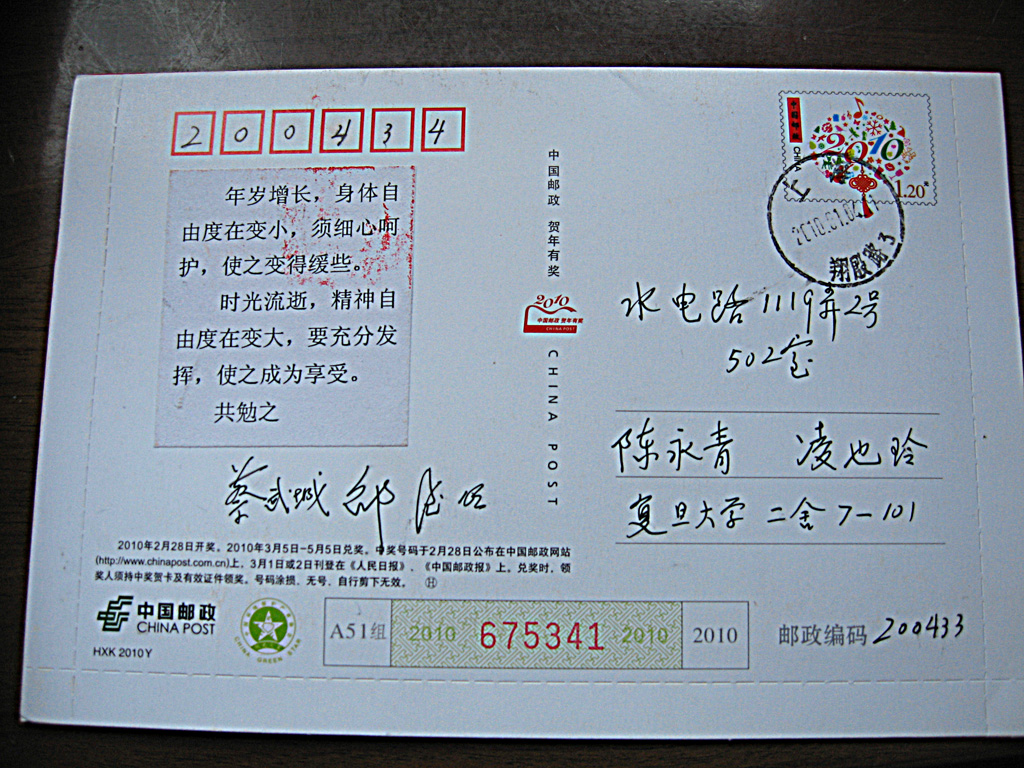 200434
年岁增长，身体自
由度在变小，须细心呵
护，使之变得缓些。
时光流逝，精神自
由度在变大，要充分发
挥，使之成为享受。
共勉之
蔡武城
2010年2月28日开奖。2010年3月5日-5月5日兑奖。中奖号码于2月28日公布在中国邮政网站
(http://www.chinapost.com.cn)上，3月1日或2日刊登在《人民日报》、《中国邮政报》上。兑奖时，领
奖人须持中奖贺卡及有效证件领奖。号码涂损、无号、自行剪下无效。 H
中国邮政
CHINA POST
HXK 2010Y
CHINA GREEN STAR
A51组
2010 675341 2010
2010
中国邮政 贺年有奖
2010
中国邮政 贺年有奖
CHINA POST
CHINA POST
中国邮政
CHINA
2010
1.20
上海
2010.01.04
翔殷路3
水电路1119弄2号
502室
陈永青 凌也玲
复旦大学 二舍7-101
邮政编码 200433